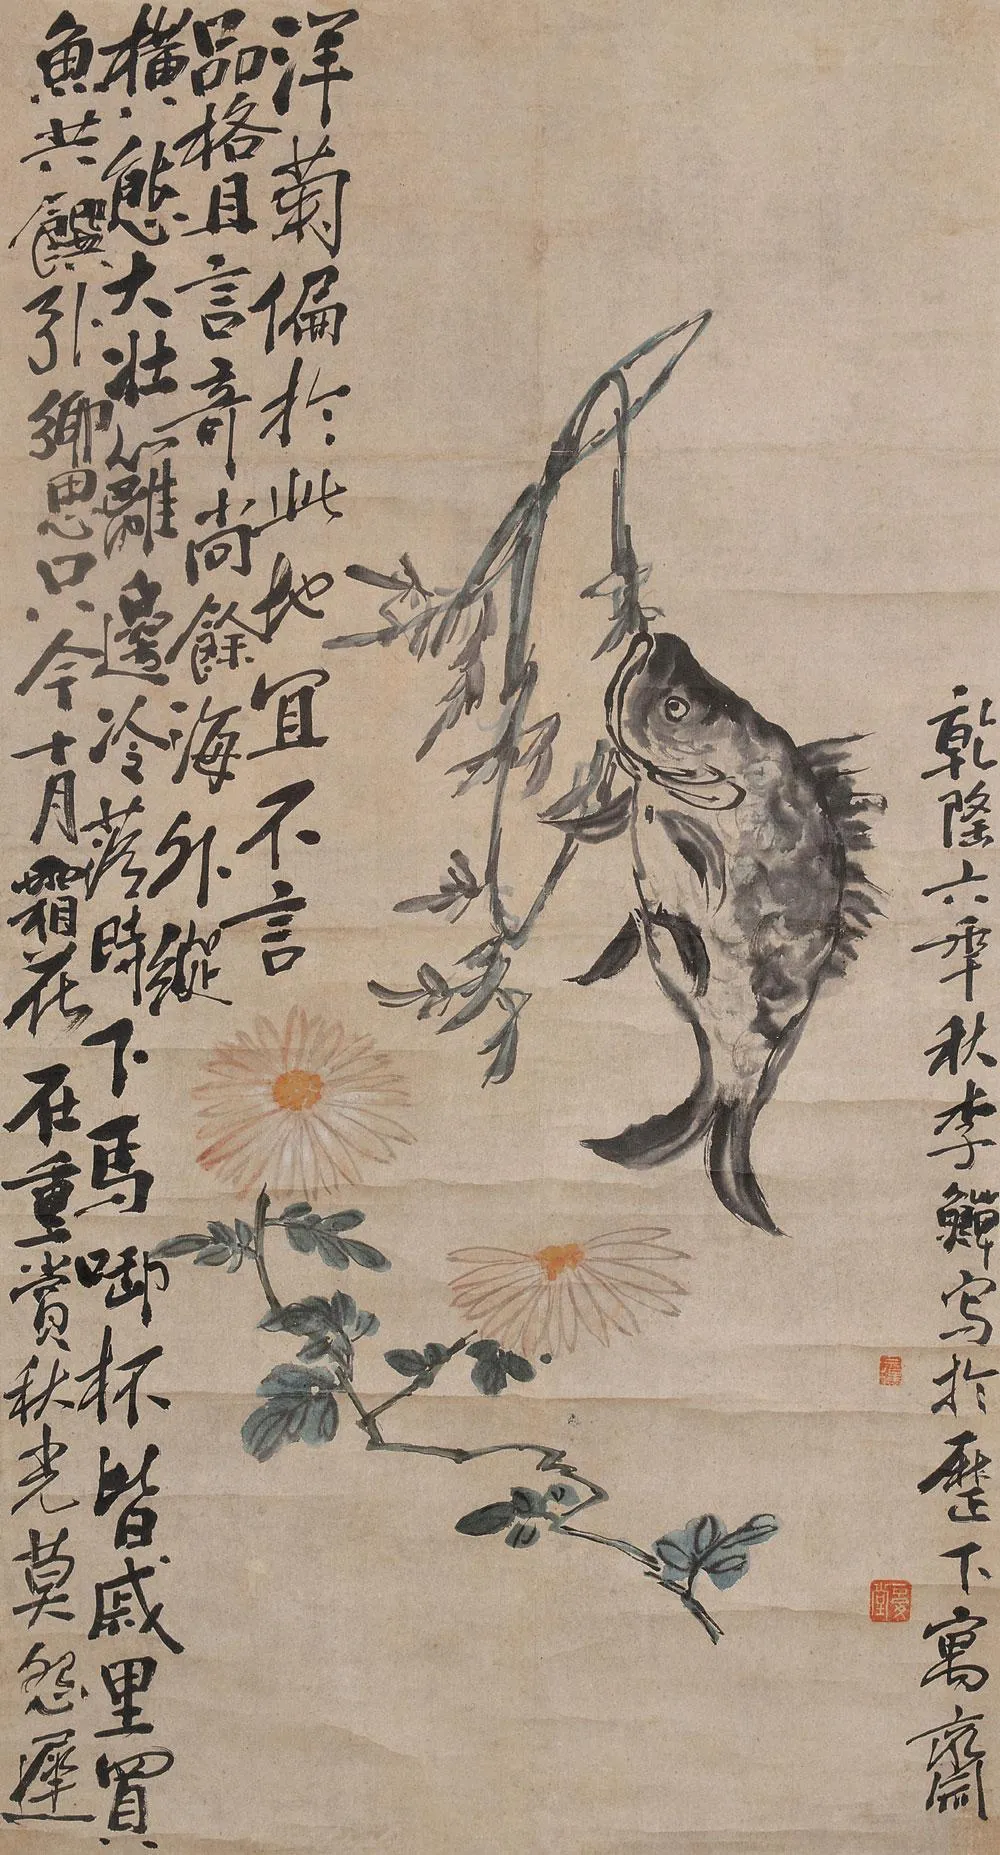 洋菊偏於此地宜不言
品格且言奇尚餘海外縱
橫態大壯籬邊冷落時下馬啣杯皆戚里買
魚共饌引鄉思只今十月霜花在重賞秋光莫怨遲
乾隆六年秋李鱓寫於歷下寓齋